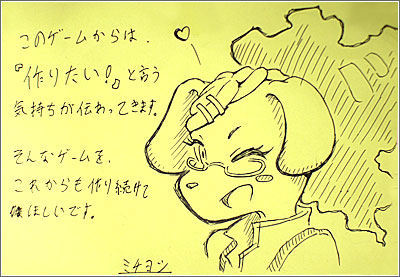 このゲームからは、
『作りたい!』と言う
気持ちが伝わってきます。
そんなゲームを、
これからも作り続けて
ほしいです。
ミチヨシ